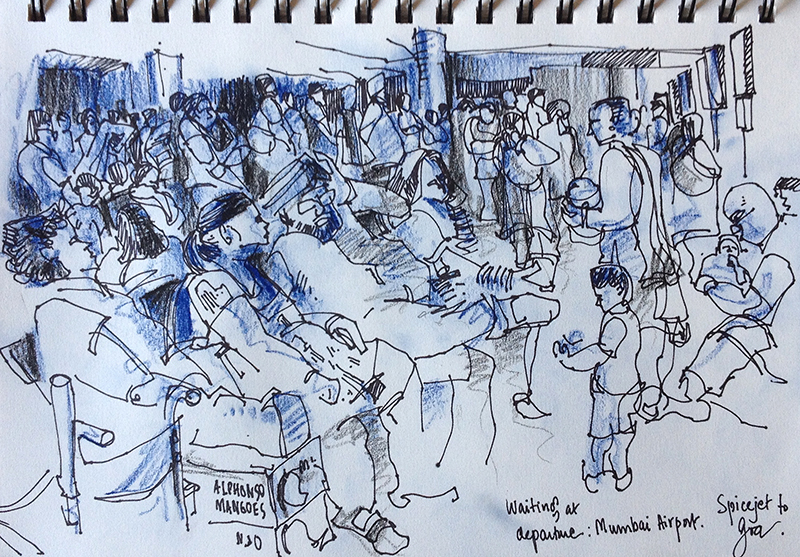 ALPHONSO
MANGOES
Waiting at
departure: Mumbai Airport.
Spicejet to
Goa.